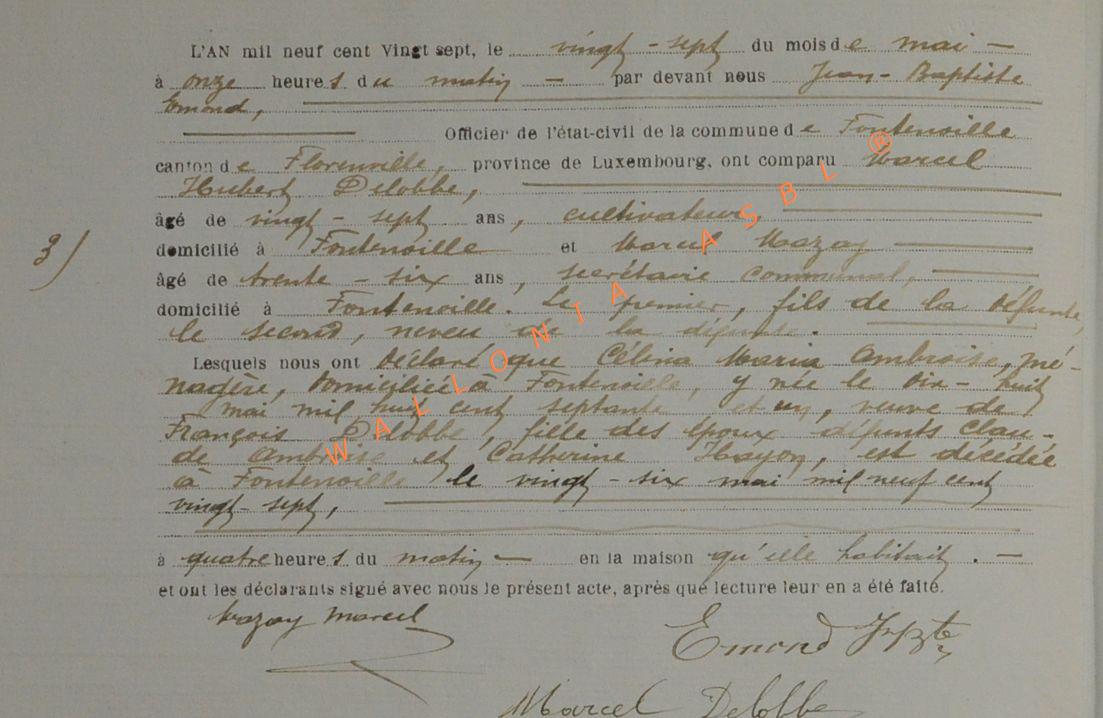 L'AN mil neuf cent Vingt sept, le vingt-sept du mois de mai —
à onze heures du matin — par devant nous Jean-Baptiste
Emond,
Officier de l'état-civil de la commune de Fontenoille
canton de Florenville, province de Luxembourg, ont comparu Marcel
Hubert Delobbe,
âgé de vingt-sept ans, cultivateur,
domicilié à Fontenoille et Marcel Mazay
âgé de trente-six ans, secrétaire communal,
domicilié à Fontenoille. Le premier, fils de la défunte,
le second, neveu de la défunte.
3/
Lesquels nous ont déclaré que Célina Maria Ambroise, mé-
nagère, domiciliée à Fontenoille, y née le dix-huit
mai mil huit cent septante et un, veuve de
François Delobbe, fille des époux défunts Clau-
de Ambroise et Catherine Hayon, est décédée
à Fontenoille le vingt-six mai mil neuf cent
vingt-sept,
à quatre heures du matin — en la maison qu'elle habitait. —
et ont les déclarants signé avec nous le présent acte, après que lecture leur en a été faite.
Mazay Marcel
Emond JBte
Marcel Delobbe
WALLONIA ASBL ®